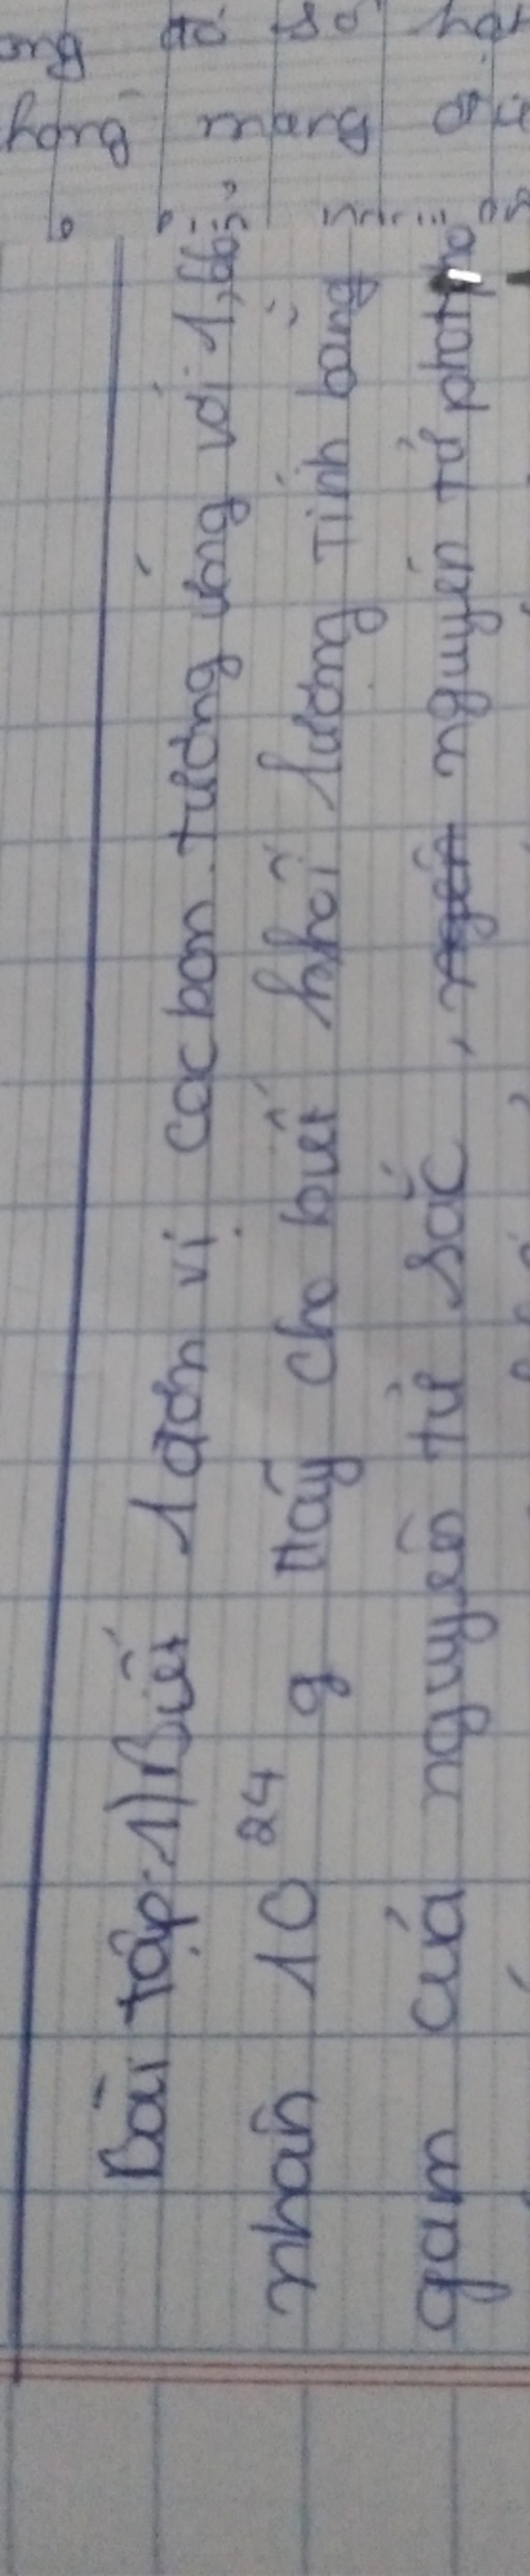 ong đó số
không mang
Bài tập: 1) Biết 1 đơn vị cacbon tương ứng với
nhân 10²⁴ g Hãy cho biết khối lượng Tính bằng
gam của nguyên tử sắc, nguyên tử photpho